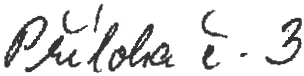 Příloha č. 3